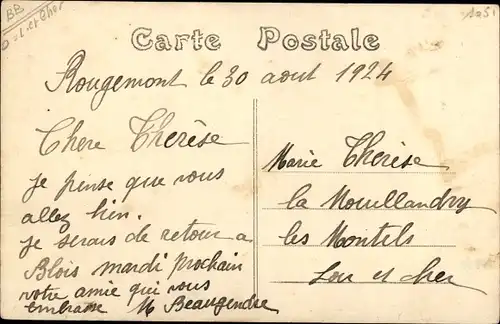 BB
Loir et Cher
Carte Postale
Rougemont le 30 aout 1924
Chere Thérèse
je pense que vous
allez bien.
je serais de retour a
Blois mardi prochain
votre amie qui vous
embrasse M Beaugendre
Marie Therèse
la Mouillandry
les Montils
Loir et cher